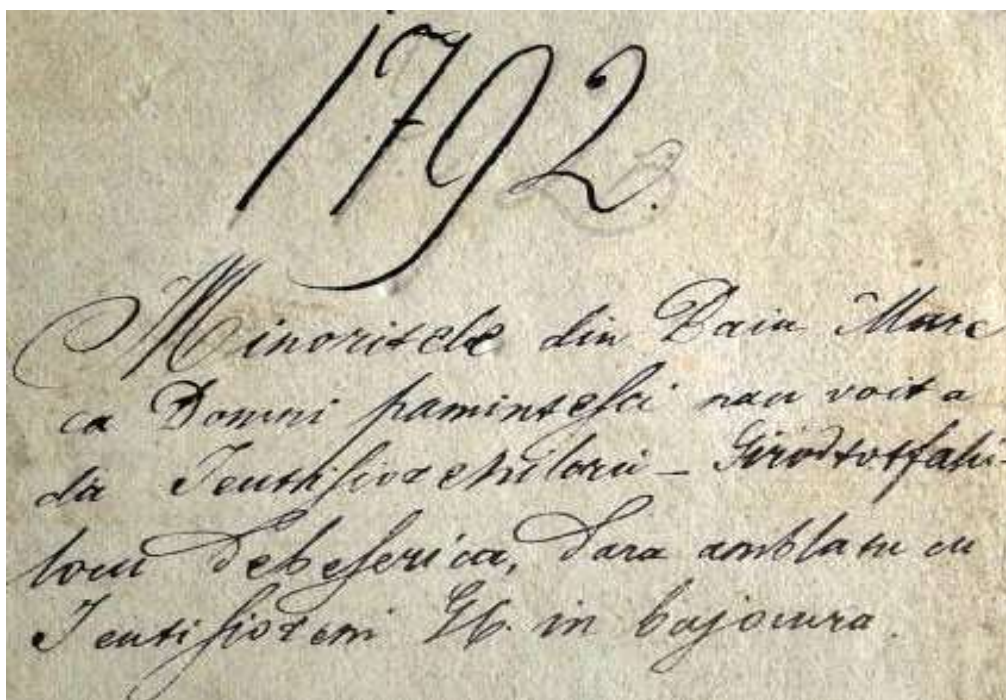 1792.
Minoritele din Baia Mare
ca Domni pamintesci nau voit a
da Teutisiotenilorii - Giródtotfalu-
locu debeserica, dara amblatu cu
Teutisioteni Gb. in bajocura.